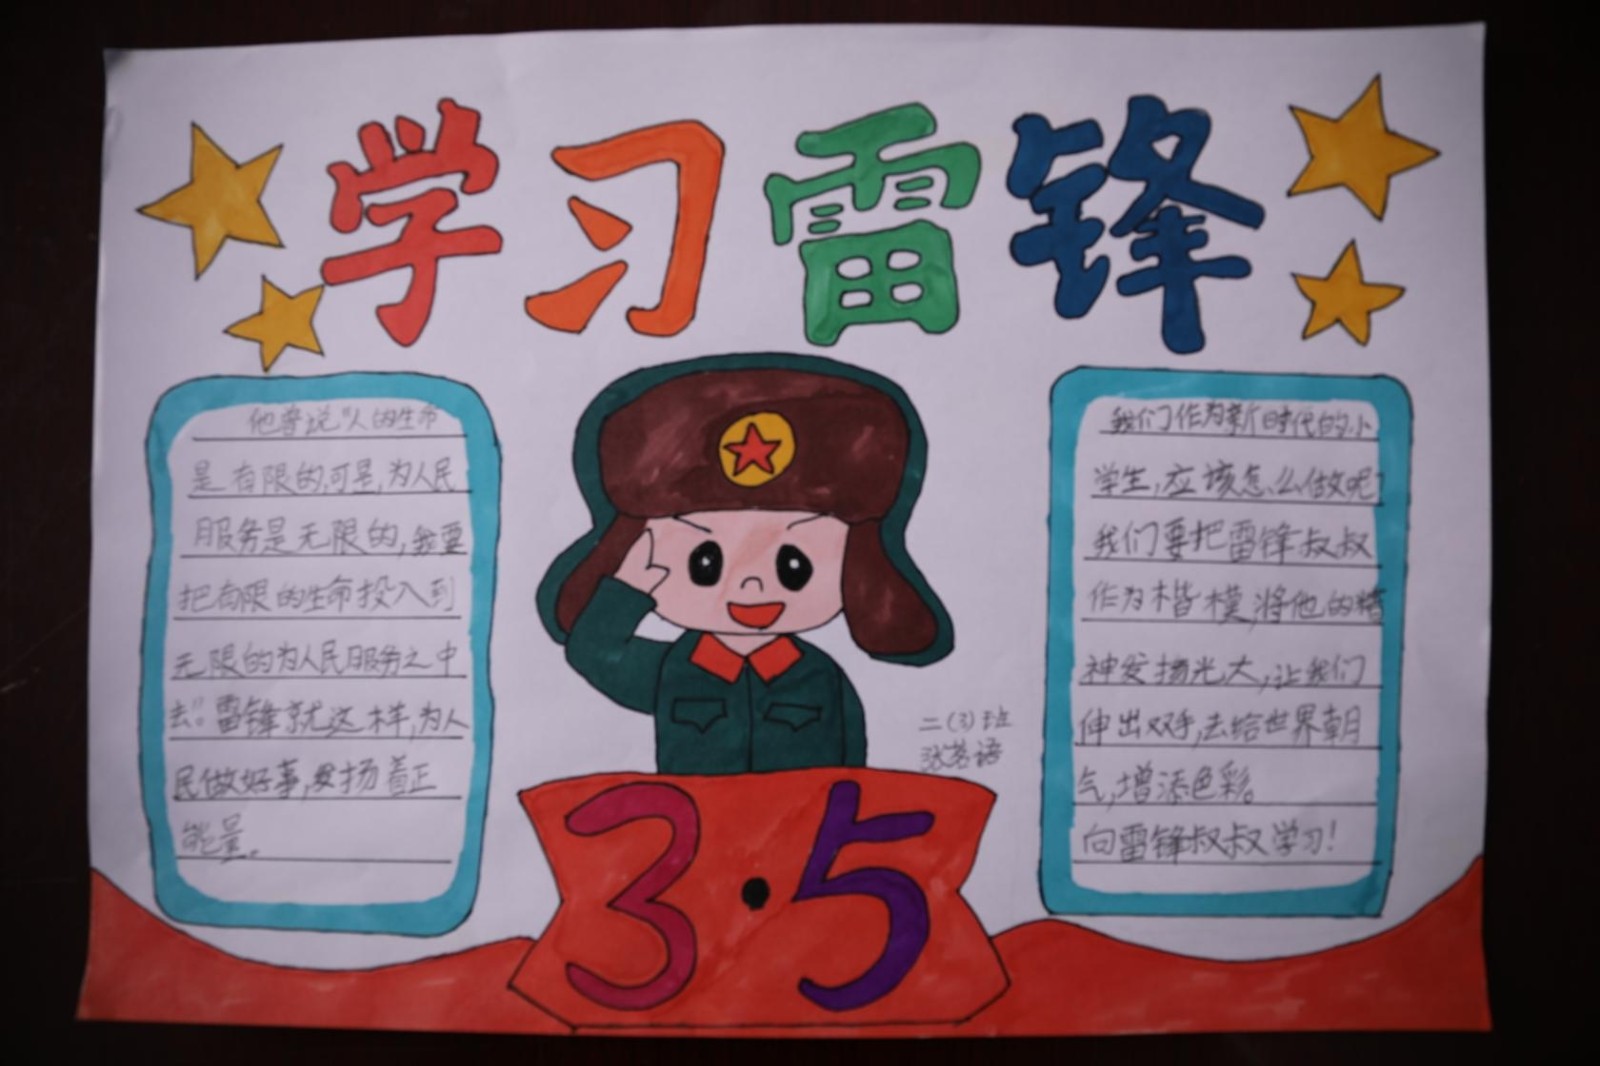 学习雷锋
他曾说"人的生命
是有限的,可是,为人民
服务是无限的,我要
把有限的生命投入到
无限的为人民服务之中
去"。雷锋就这样,为人
民做好事,发扬着正
能量。
我们作为新时代的小
学生,应该怎么做呢
我们要把雷锋叔叔
作为楷模,将他的精
神发扬光大,让我们
伸出双手,去给世界朝
气,增添色彩。
向雷锋叔叔学习!
二(3)班
张茗语
3·5